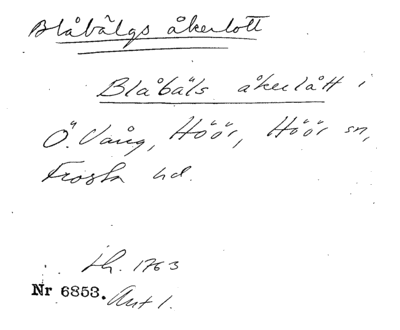 Blåbälgs åkerlott
Blåbäls åkerlått i
Ö. Vång, Höör, Höör sn,
Frosta hd.
Lh. 1763
Nr 6853. Akt 1.